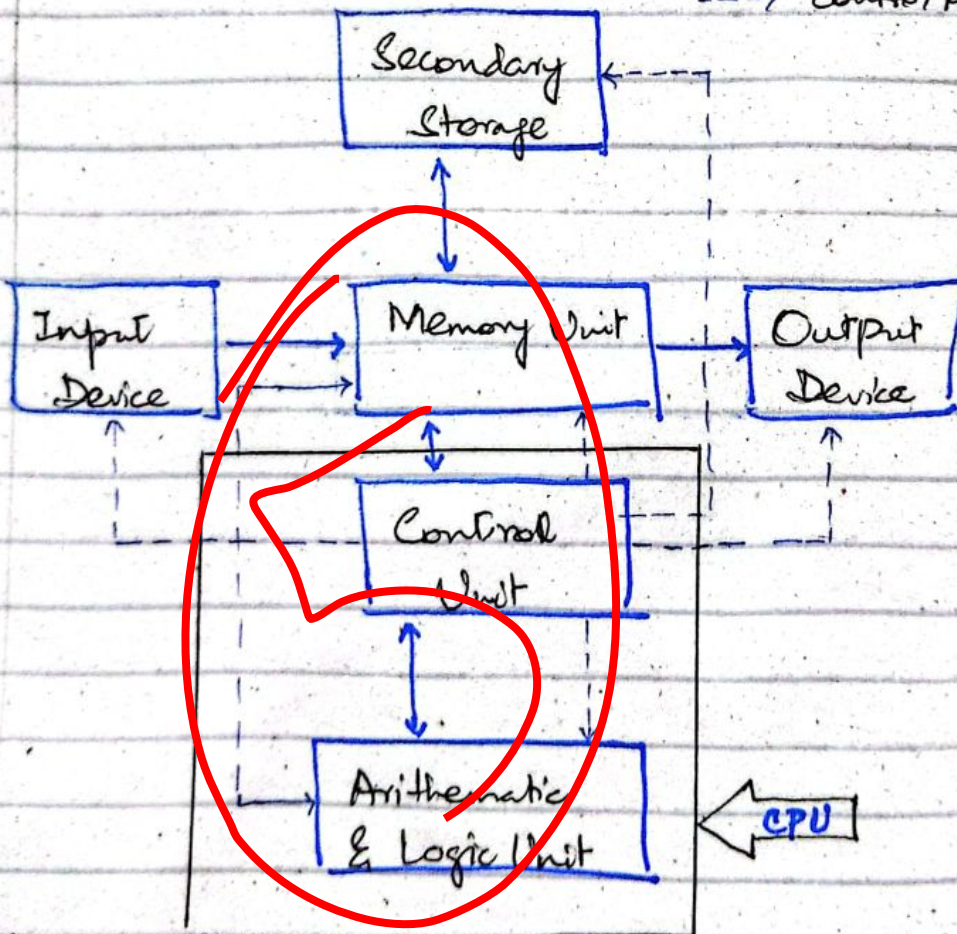 Secondary
Storage
Input
Device
Memory Unit
Output
Device
Control
Unit
Arithematic
& Logic Unit
CPU
5